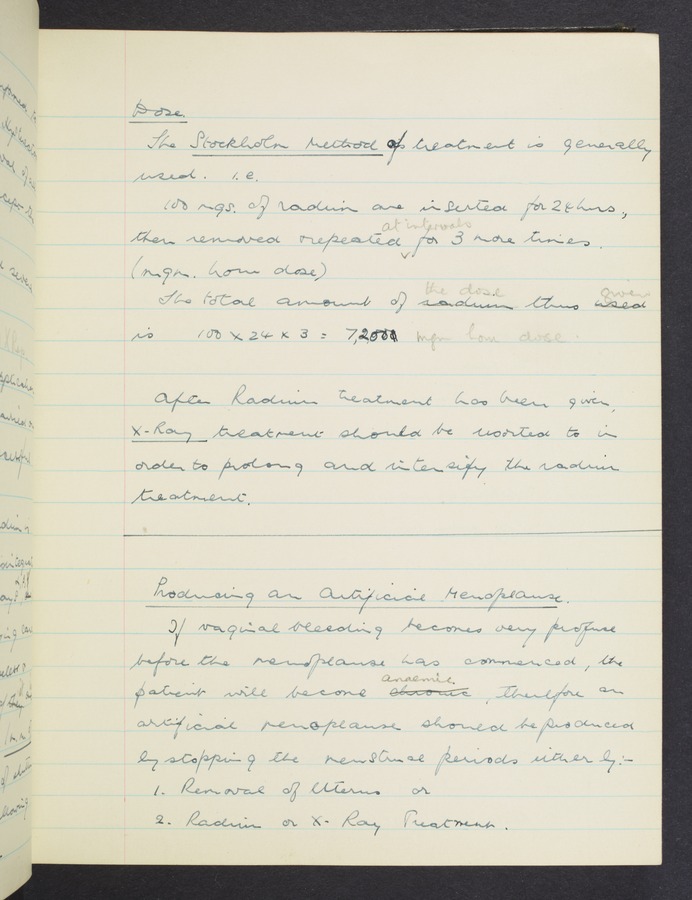 Dose.
The Stockholm Method of treatment is generally
used. i.e.
100 mgs. of radium are inserted for 24 hrs.,
at intervals
then removed & repeated for 3 more times.
(mgm. hour dose)
the dose given
The total amount of radium thus used
is 100 x 24 x 3 = 7,200 mgm hour dose.
After Radium treatment has been given,
X-Ray treatment should be resorted to in
order to prolong and intensify the radium
treatment.
Producing an Artificial Menoplause.
If vaginal bleeding becomes very profuse
before the menoplause has commenced, the
anaemic
patient will become chronic, therefore an
artificial menoplause should be produced
by stopping the menstrual periods either by:-
1. Removal of Uterus or
2. Radium or X-Ray Treatment.